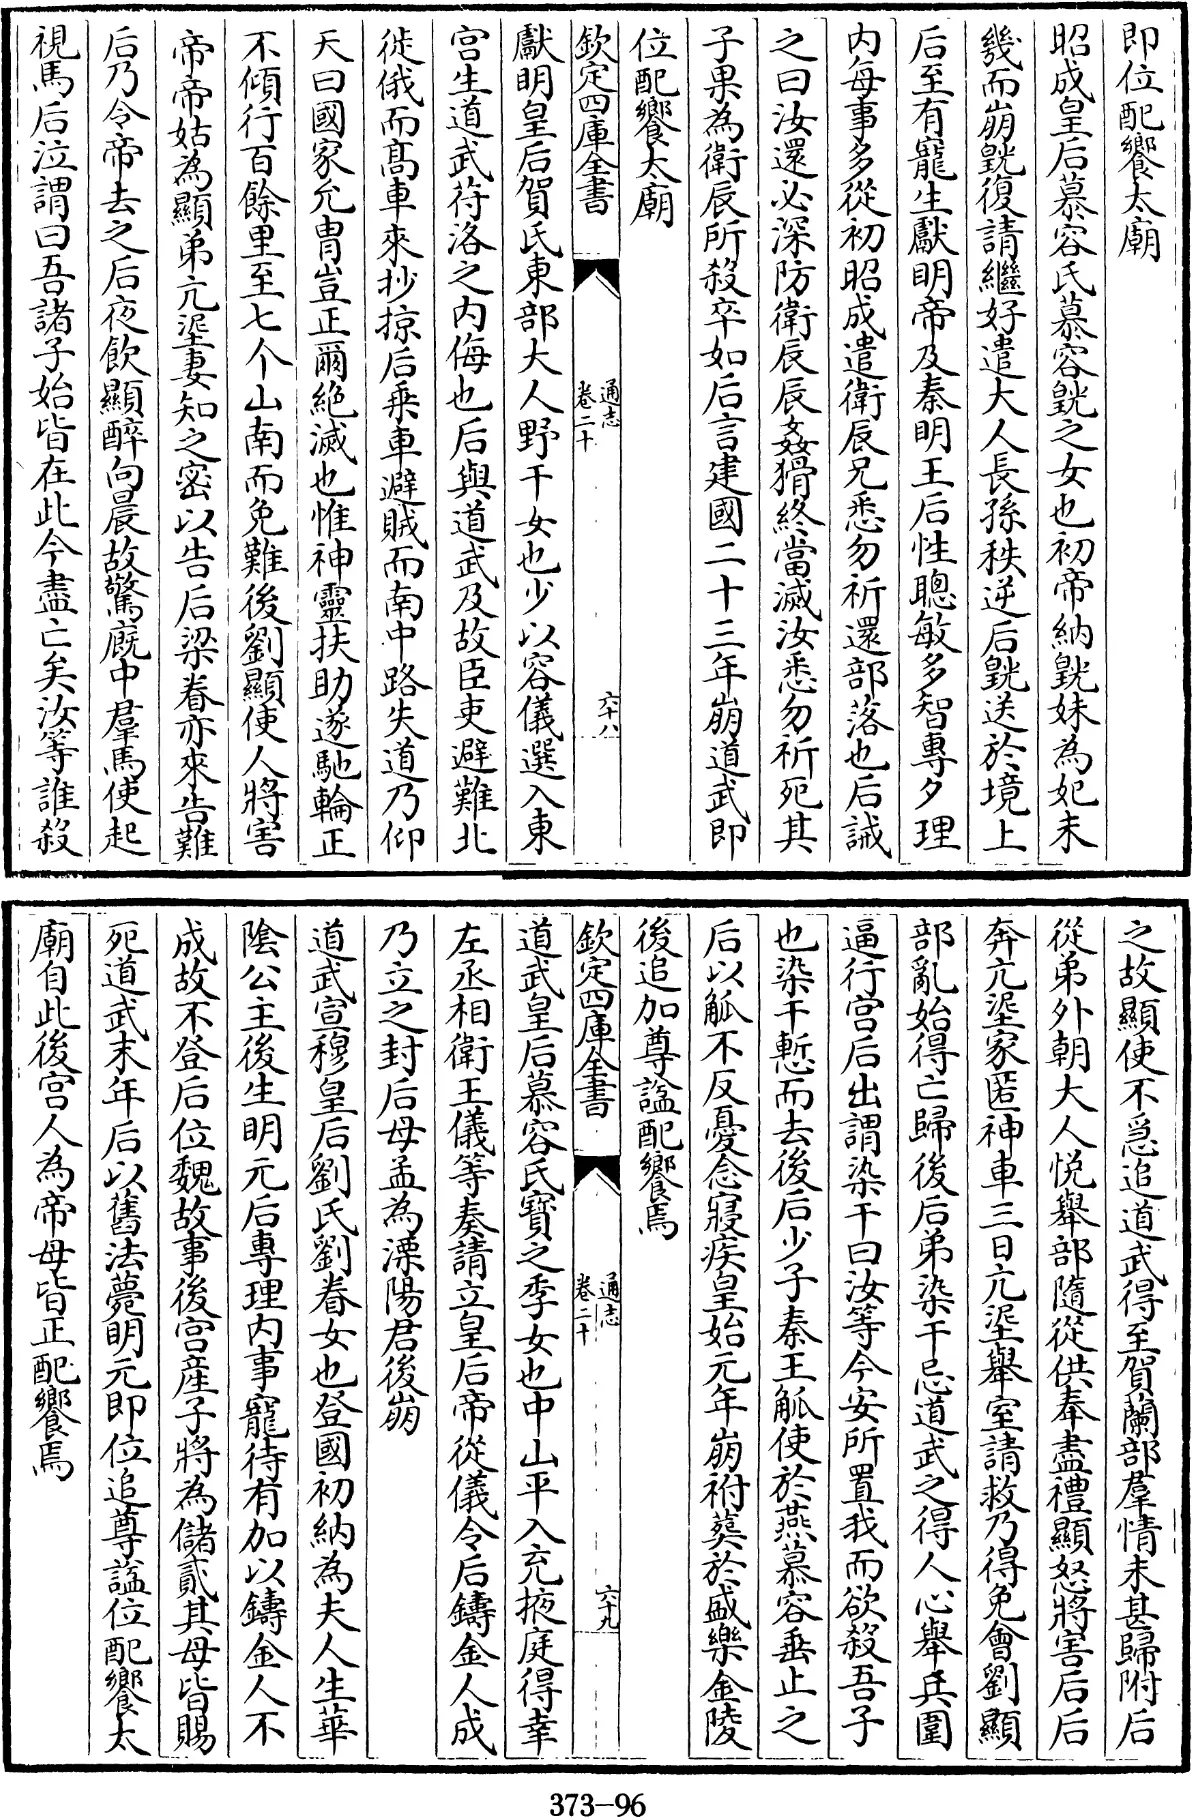 即位配饗太廟
昭成皇后慕容氏慕容皝之女也初帝納皝妹為妃未
幾而崩皝復請繼好遣大人長孫秩逆后皝送於境上
后至有寵生獻明帝及秦明王后性聰敏多智專夕理
内每事多從初昭成遣衛辰兄悉勿祈還部落也后誡
之曰汝還必深防衛辰辰姦猾終當滅汝悉勿祈死其
子果為衛辰所殺卒如后言建國二十三年崩道武即
位配饗太廟
欽定四庫全書
通志
卷二十
六十八
獻明皇后賀氏東部大人野干女也少以容儀選入東
宫生道武苻洛之内侮也后與道武及故臣吏避難北
徙俄而髙車來抄掠后乗車避賊而南中路失道乃仰
天曰國家允胄豈正爾絶滅也惟神靈扶助遂馳輪正
不傾行百餘里至七个山南而免難後劉顯使人將害
帝帝姑為顯弟亢埿妻知之密以告后梁眷亦來告難
后乃令帝去之后夜飲顯醉向晨故驚廐中羣馬使起
視馬后泣謂曰吾諸子始皆在此今盡亡矣汝等誰殺
之故顯使不急追道武得至賀蘭部羣情未甚歸附后
從弟外朝大人悦舉部隨從供奉盡禮顯怒將害后后
奔亢埿家匿神車三日亢埿舉室請救乃得免會劉顯
部亂始得亡歸後后弟染干忌道武之得人心舉兵圍
逼行宫后出謂染干曰汝等今安所置我而欲殺吾子
也染干慙而去後后少子秦王觚使於燕慕容垂止之
后以觚不反憂念寢疾皇始元年崩祔葬於盛樂金陵
後追加尊諡配饗焉
欽定四庫全書
通志
卷二十
六十九
道武皇后慕容氏寶之季女也中山平入充掖庭得幸
左丞相衛王儀等奏請立皇后帝從儀令后鑄金人成
乃立之封后母孟為溧陽君後崩
道武宣穆皇后劉氏劉眷女也登國初納為夫人生華
隂公主後生明元后專理内事寵待有加以鑄金人不
成故不登后位魏故事後宫産子將為儲貳其母皆賜
死道武末年后以舊法薨明元即位追尊諡位配饗太
廟自此後宫人為帝母皆正配饗焉
373-96